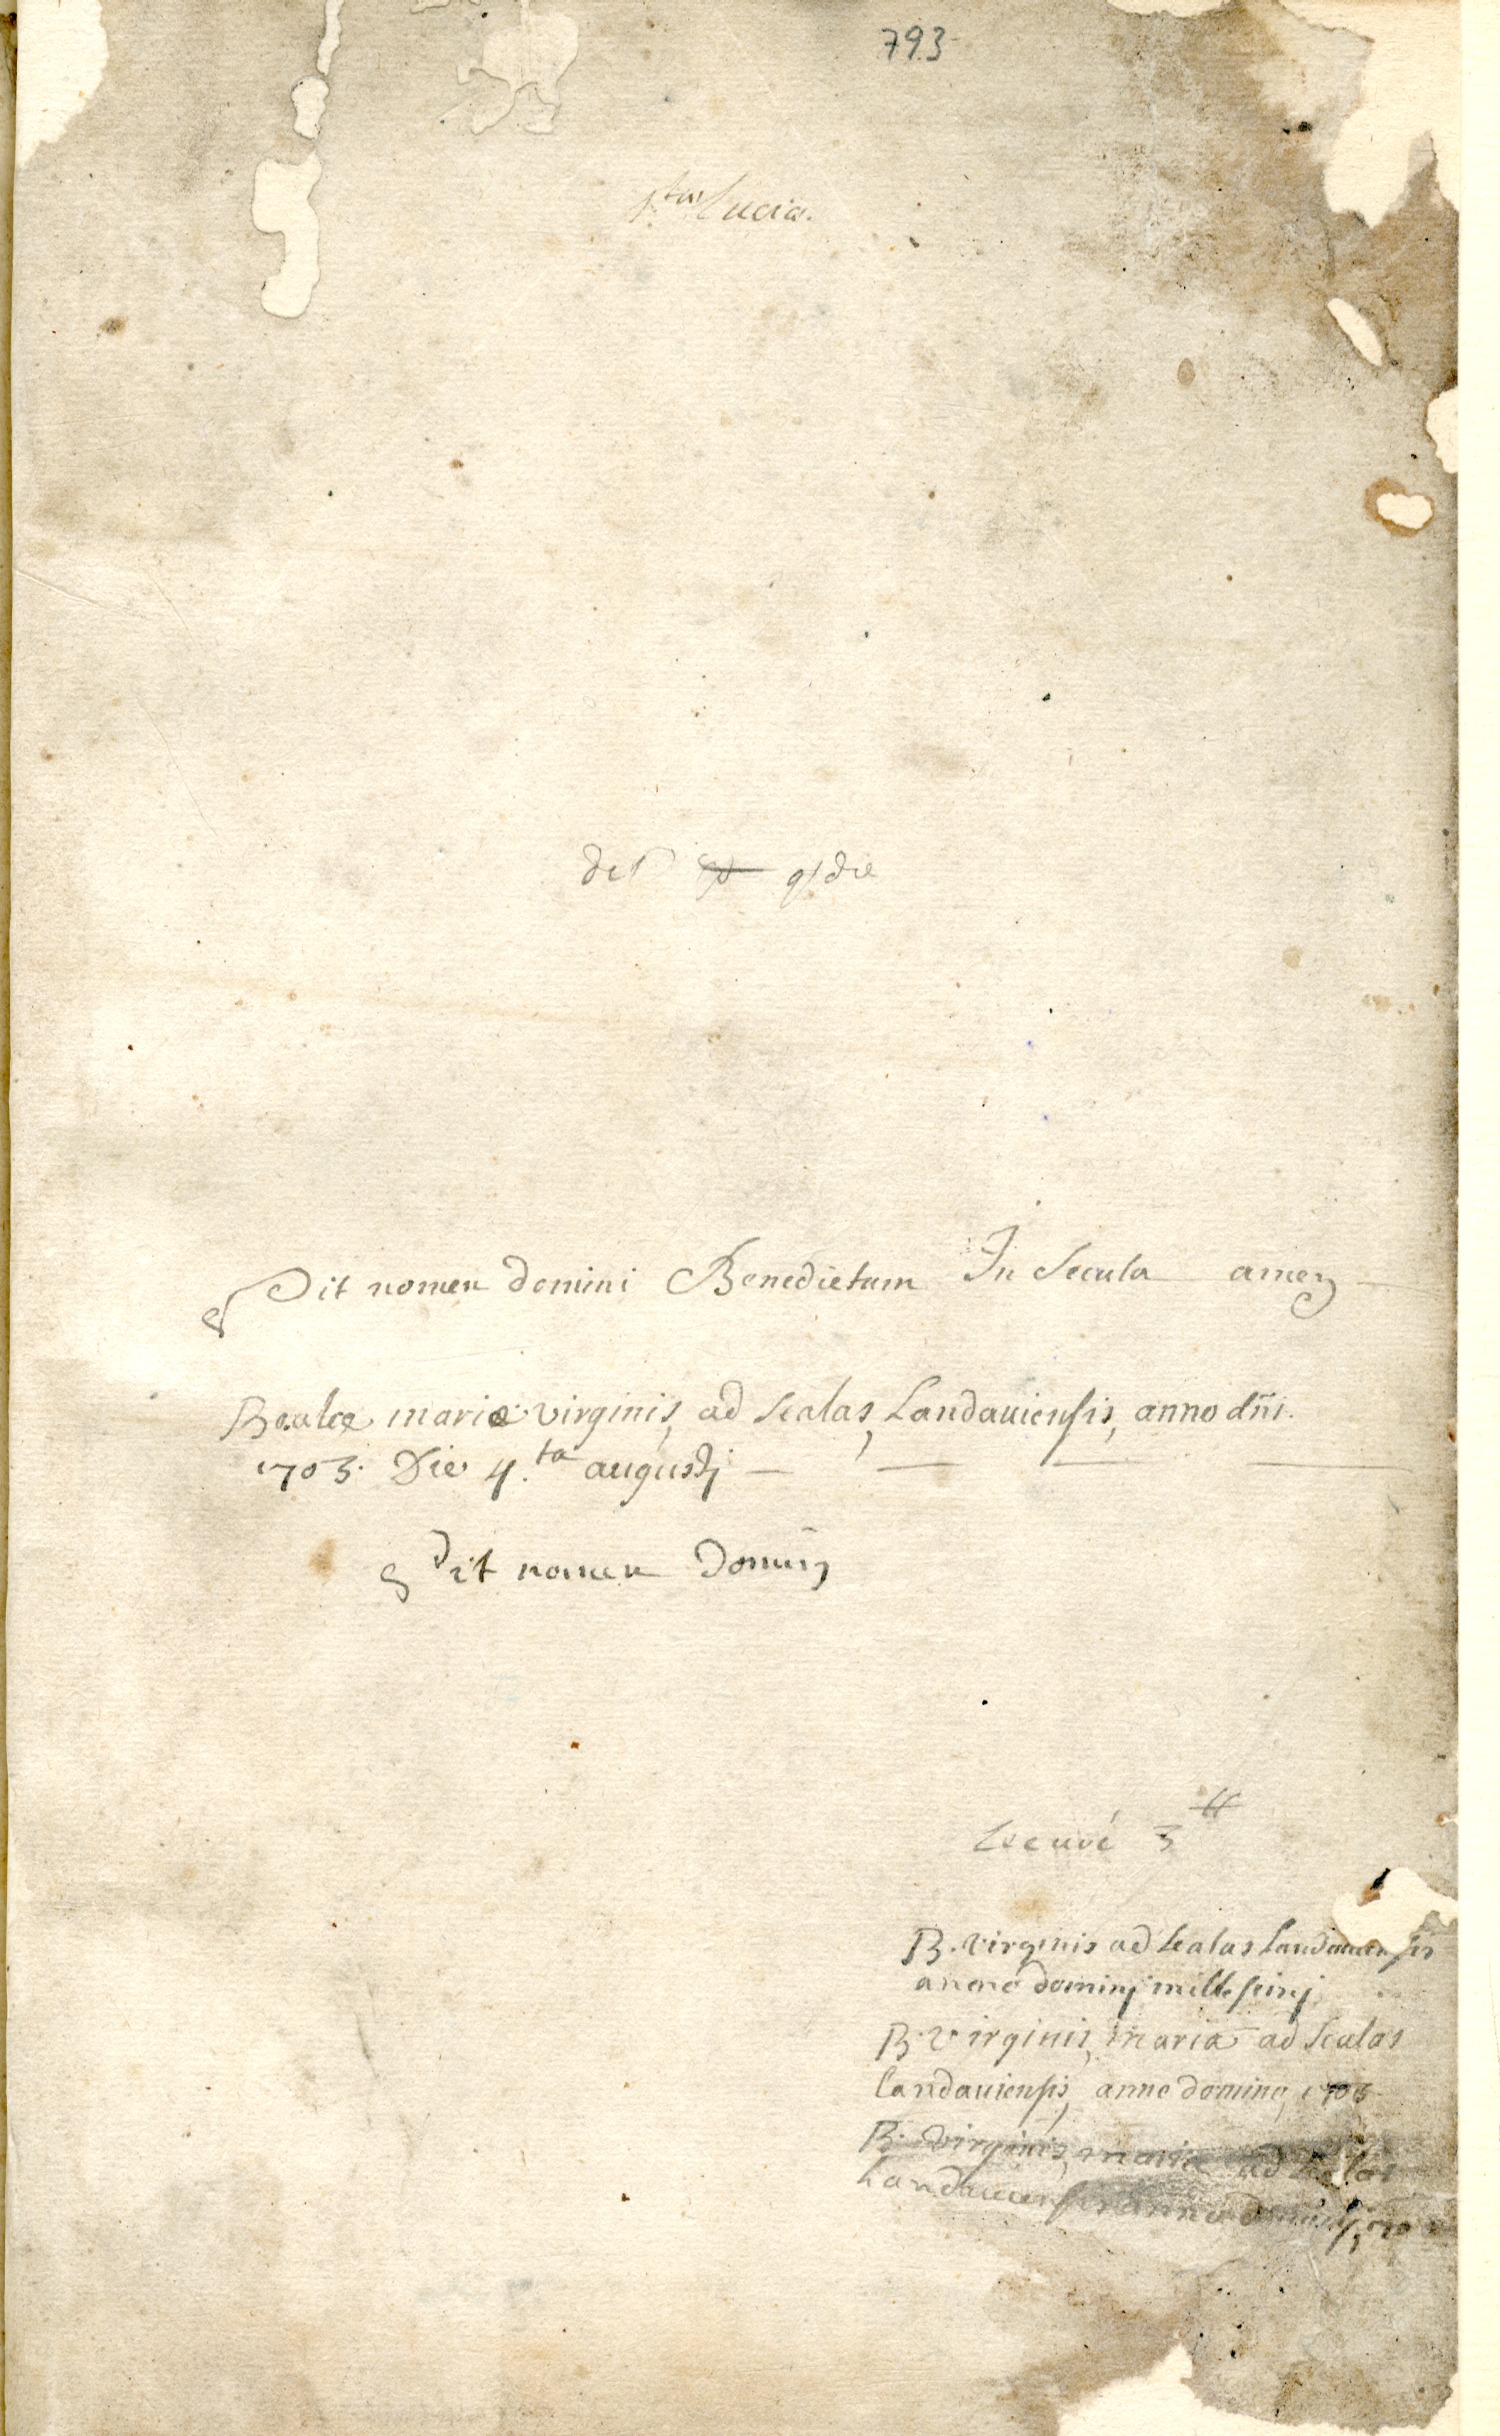 793
S.ta Lucia.
die
Sit nomen domini Benedictum In Secula amen
Beatæ mariæ virginis, ad Scalas, Landauiensis, anno dñi.
1703. Die 4.ta augustj
Sit nomen Dominj
3 ₶
B. virginis ad Scalas Landauiensis
anno dominj millesimj
B. virginis, maria ad Scalas
landauiensis, anno domino, 1703
B. virginis, maria ad Scalas
Landauiensis anno